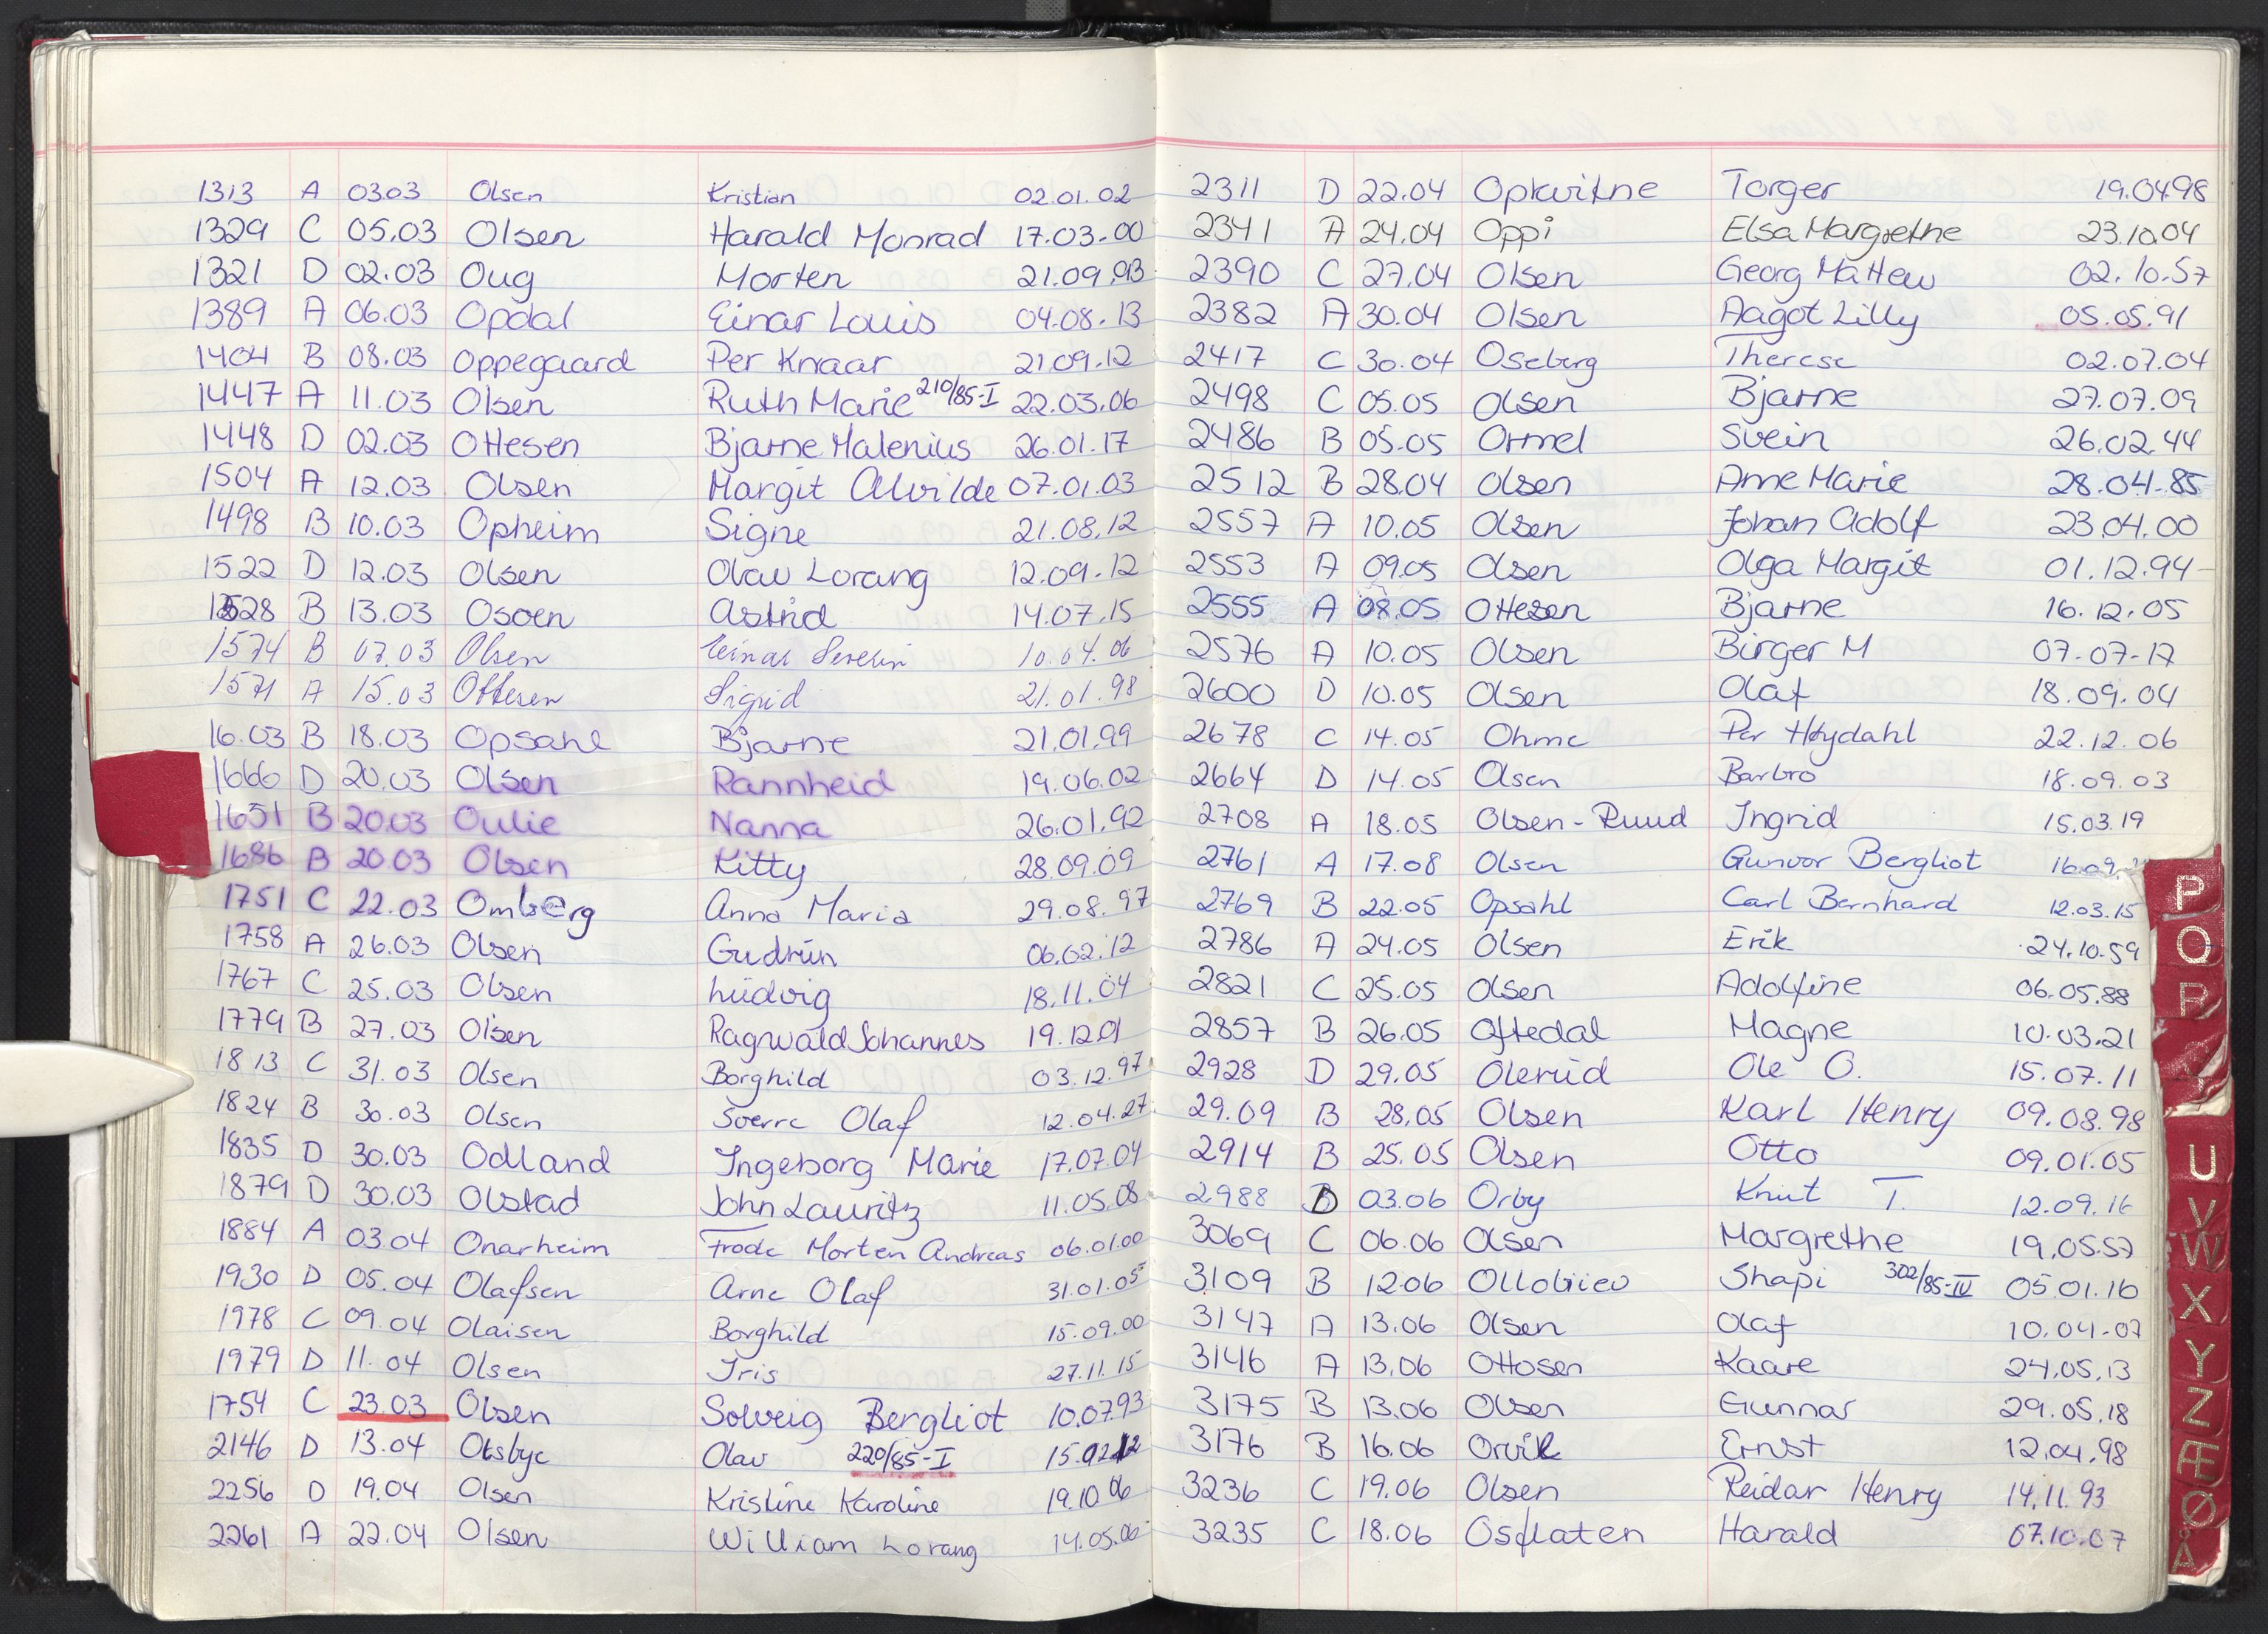 1313 A 03.03 Olsen Kristian 02.01.02
1329 C 05.03 Olsen Harald Monrad 17.03.00
1321 D 02.03 Oug Morten 21.09.03
1389 A 06.03 Opdal Einar Louis 04.08.13
1404 B 08.03 Oppegaard Per Knaar 21.09.12
1447 A 11.03 Olsen Ruth Marie 210/85-I 22.03.06
1448 D 02.03 Ottesen Bjarne Malenius 26.01.17
1504 A 12.03 Olsen Margit Alvilde 07.01.03
1498 B 10.03 Opheim Signe 21.08.12
1522 D 12.03 Olsen Olav Lorang 12.09.12
1528 B 13.03 Osoen Astrid 14.07.15
1574 B 07.03 Olsen Einar Severin 10.04.06
1571 A 15.03 Ottesen Sigrid 21.01.98
16.03 B 18.03 Opsahl Bjarne 21.01.99
1666 D 20.03 Olsen Rannheid 19.06.02
1651 B 20.03 Oulie Nanna 26.01.92
1686 B 20.03 Olsen Kitty 28.09.09
1751 C 22.03 Omberg Anna Maria 29.08.97
1758 A 26.03 Olsen Gudrun 06.02.12
1767 C 25.03 Olsen Ludvig 18.11.04
1779 B 27.03 Olsen Ragnvald Johannes 19.12.01
1813 C 31.03 Olsen Borghild 03.12.97
1824 B 30.03 Olsen Sverre Olaf 12.04.27
1835 D 30.03 Odland Ingeborg Marie 17.07.04
1879 D 30.03 Olstad John Lauritz 11.05.08
1884 A 03.04 Onarheim Frode Morten Andreas 06.01.00
1930 D 05.04 Olafsen Arne Olaf 31.01.05
1978 C 09.04 Olaisen Borghild 15.09.00
1979 D 11.04 Olsen Iris 27.11.15
1754 C 23.03 Olsen Solveig Bergliot 10.07.93
2146 D 13.04 Otsbye Olav 220/85-I 15.02.12
2256 D 19.04 Olsen Kristine Karoline 19.10.06
2261 A 22.04 Olsen William Lorang 14.05.06
2311 D 22.04 Opkvitne Torger 19.04.98
2341 A 24.04 Oppi Elsa Margrethe 23.10.04
2390 C 27.04 Olsen Georg Mathew 02.10.57
2382 A 30.04 Olsen Aagot Lilly 05.05.91
2417 C 30.04 Oseberg Therese 02.07.04
2498 C 05.05 Olsen Bjarne 27.07.09
2486 B 05.05 Ormel Svein 26.02.44
2512 B 28.04 Olsen Arne Marie 28.04.85
2557 A 10.05 Olsen Johan Adolf 23.04.00
2553 A 09.05 Olsen Olga Margit 01.12.94
2555 A 08.05 Ottesen Bjarne 16.12.05
2576 A 10.05 Olsen Birger M 07-07-17
2600 D 10.05 Olsen Olaf 18.09.04
2678 C 14.05 Ohme Per Høydahl 22.12.06
2664 D 14.05 Olsen Barbro 18.09.03
2708 A 18.05 Olsen-Ruud Ingrid 15.03.19
2761 A 17.08 Olsen Gunvor Bergliot 16.09.
2769 B 22.05 Opsahl Carl Bernhard 12.03.15
2786 A 24.05 Olsen Erik 24.10.59
2821 C 25.05 Olsen Adolfine 06.05.88
2857 B 26.05 Oftedal Magne 10.03.21
2928 D 29.05 Olerud Ole O. 15.07.11
29.09 B 28.05 Olsen Karl Henry 09.08.98
2914 B 25.05 Olsen Otto 09.01.05
2988 D 03.06 Orby Knut T. 12.09.16
3069 C 06.06 Olsen Margrethe 19.05.57
3109 B 12.06 Ollobiev Shapi 302/85-IV 05.01.16
3147 A 13.06 Olsen Olaf 10.04-07
3146 A 13.06 Ottosen Kaare 24.05.13
3175 B 13.06 Olsen Gunnar 29.05.18
3176 B 16.06 Orvik Ernst 12.04.98
3236 C 19.06 Olsen Reidar Henry 14.11.93
3235 C 18.06 Osflaten Harald 07.10.07
P
Q
R
U
V
W
X
Y
Z
Æ
Ø
Å